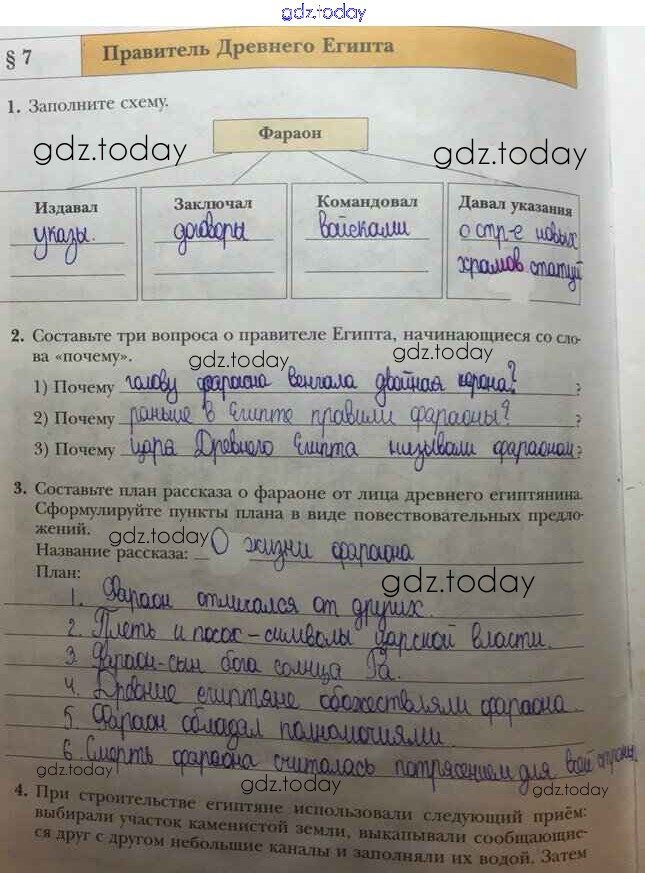 gdz.today
§ 7
Правитель Древнего Египта
1. Заполните схему.
Фараон
gdz.today
gdz.today
Издавал
указы.
Заключал
договоры
Командовал
войсками
Давал указания
о стр-е новых
храмов статуй
2. Составьте три вопроса о правителе Египта, начинающиеся со сло-
ва «почему».
gdz.today
gdz.today
1) Почему голову фараона венчала двойная корона? ?
2) Почему раньше в Египте правили фараоны? ?
3) Почему царя Древнего Египта называли фараоном ?
3. Составьте план рассказа о фараоне от лица древнего египтянина.
Сформулируйте пункты плана в виде повествовательных предло-
жений.
gdz.today
Название рассказа: О жизни фараона
План:
gdz.today
1. Фараон отличался от других.
2. Плеть и посох - символы царской власти.
3. Фараон-сын бога солнца Ра.
4. Древние египтяне обожествляли фараона.
5. Фараон обладал полномочиями.
6. Смерть фараона считалась потрясением для всей страны.
gdz.today
gdz.today
gdz.today
4. При строительстве египтяне использовали следующий приём:
выбирали участок каменистой земли, выкапывали сообщающие-
ся друг с другом небольшие каналы и заполняли их водой. Затем